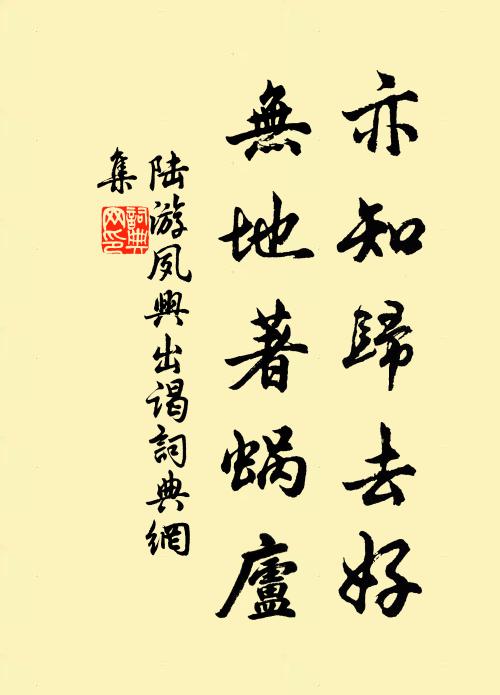 亦知歸去好
無地著蝸廬
陆游夙興出谒詞典網
集
詞典
网印